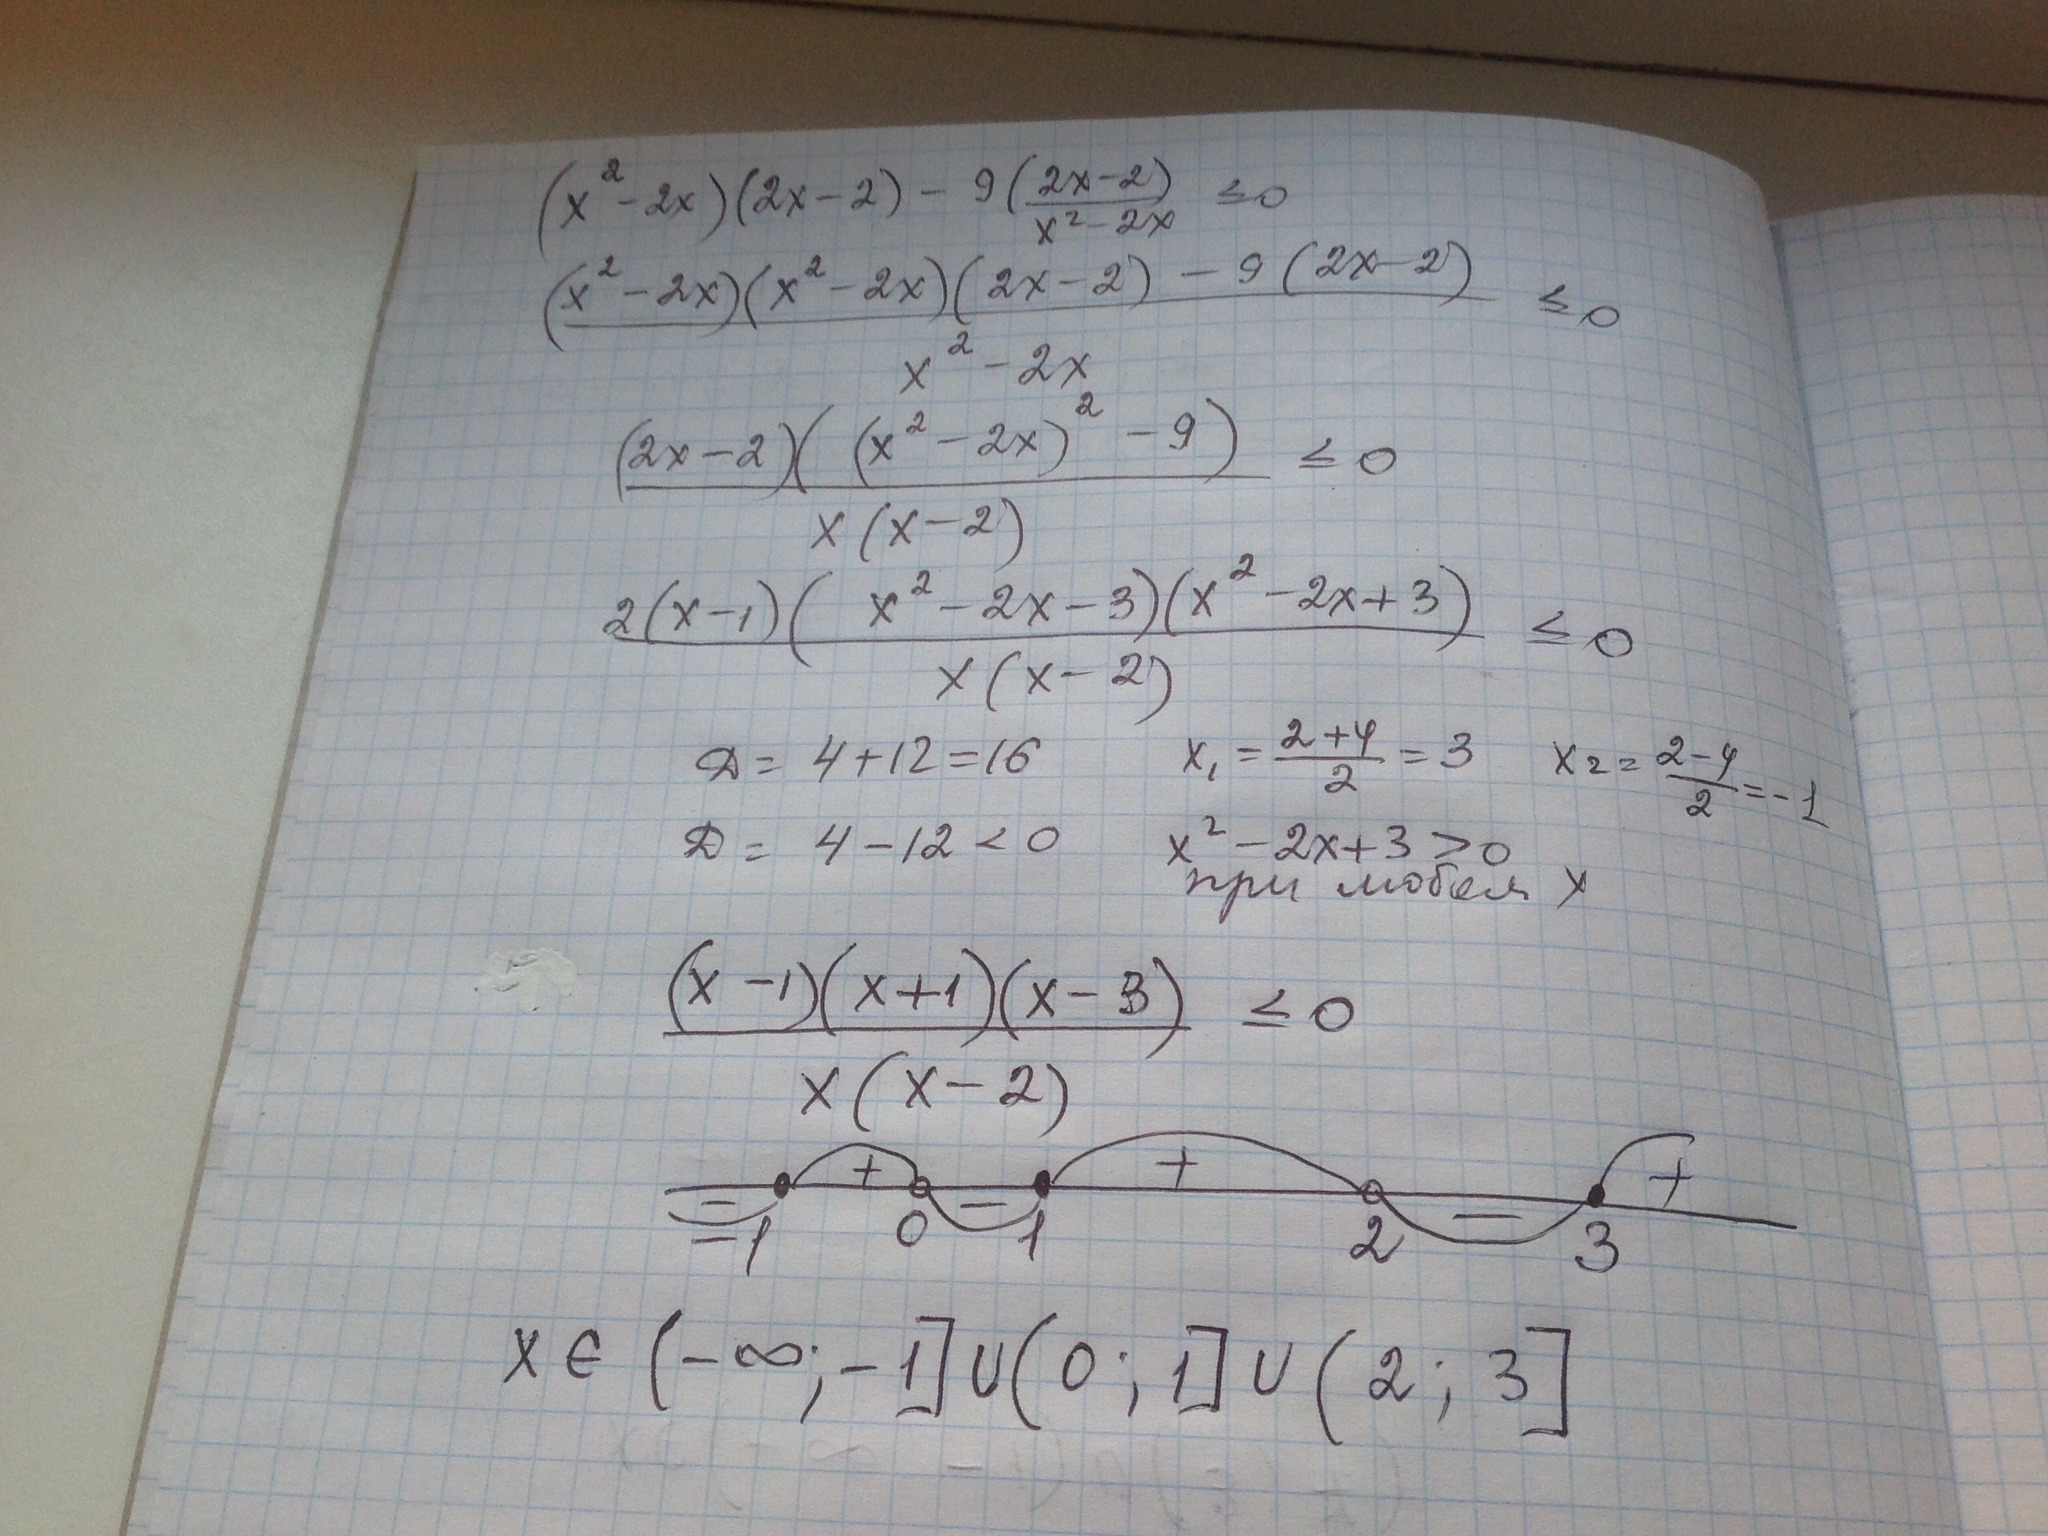 (x²-2x)(2x-2) - 9(2x-2)/(x²-2x) ≤0
(x²-2x)(x²-2x)(2x-2) - 9(2x-2) / x²-2x ≤0
(2x-2)((x²-2x)²-9) / x(x-2) ≤0
2(x-1)(x²-2x-3)(x²-2x+3) / x(x-2) ≤0
D = 4+12=16 x₁ = (2+4)/2 = 3 x₂ = (2-4)/2 = -1
D = 4-12<0 x²-2x+3>0
при любом x
(x-1)(x+1)(x-3) / x(x-2) ≤0
- + - + - +
-1 0 1 2 3
x∈(-∞;-1]∪(0;1]∪(2;3]